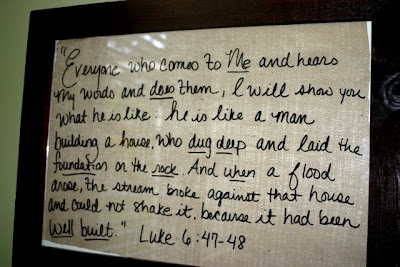 "Everyone who comes to Me and hears
my words and does them, I will show you
what he is like he is like a man
building a house, who dug deep and laid the
foundation on the rock. And when a flood
arose, the stream broke against that house
and could not shake it, because it had been
well built." Luke 6:47-48